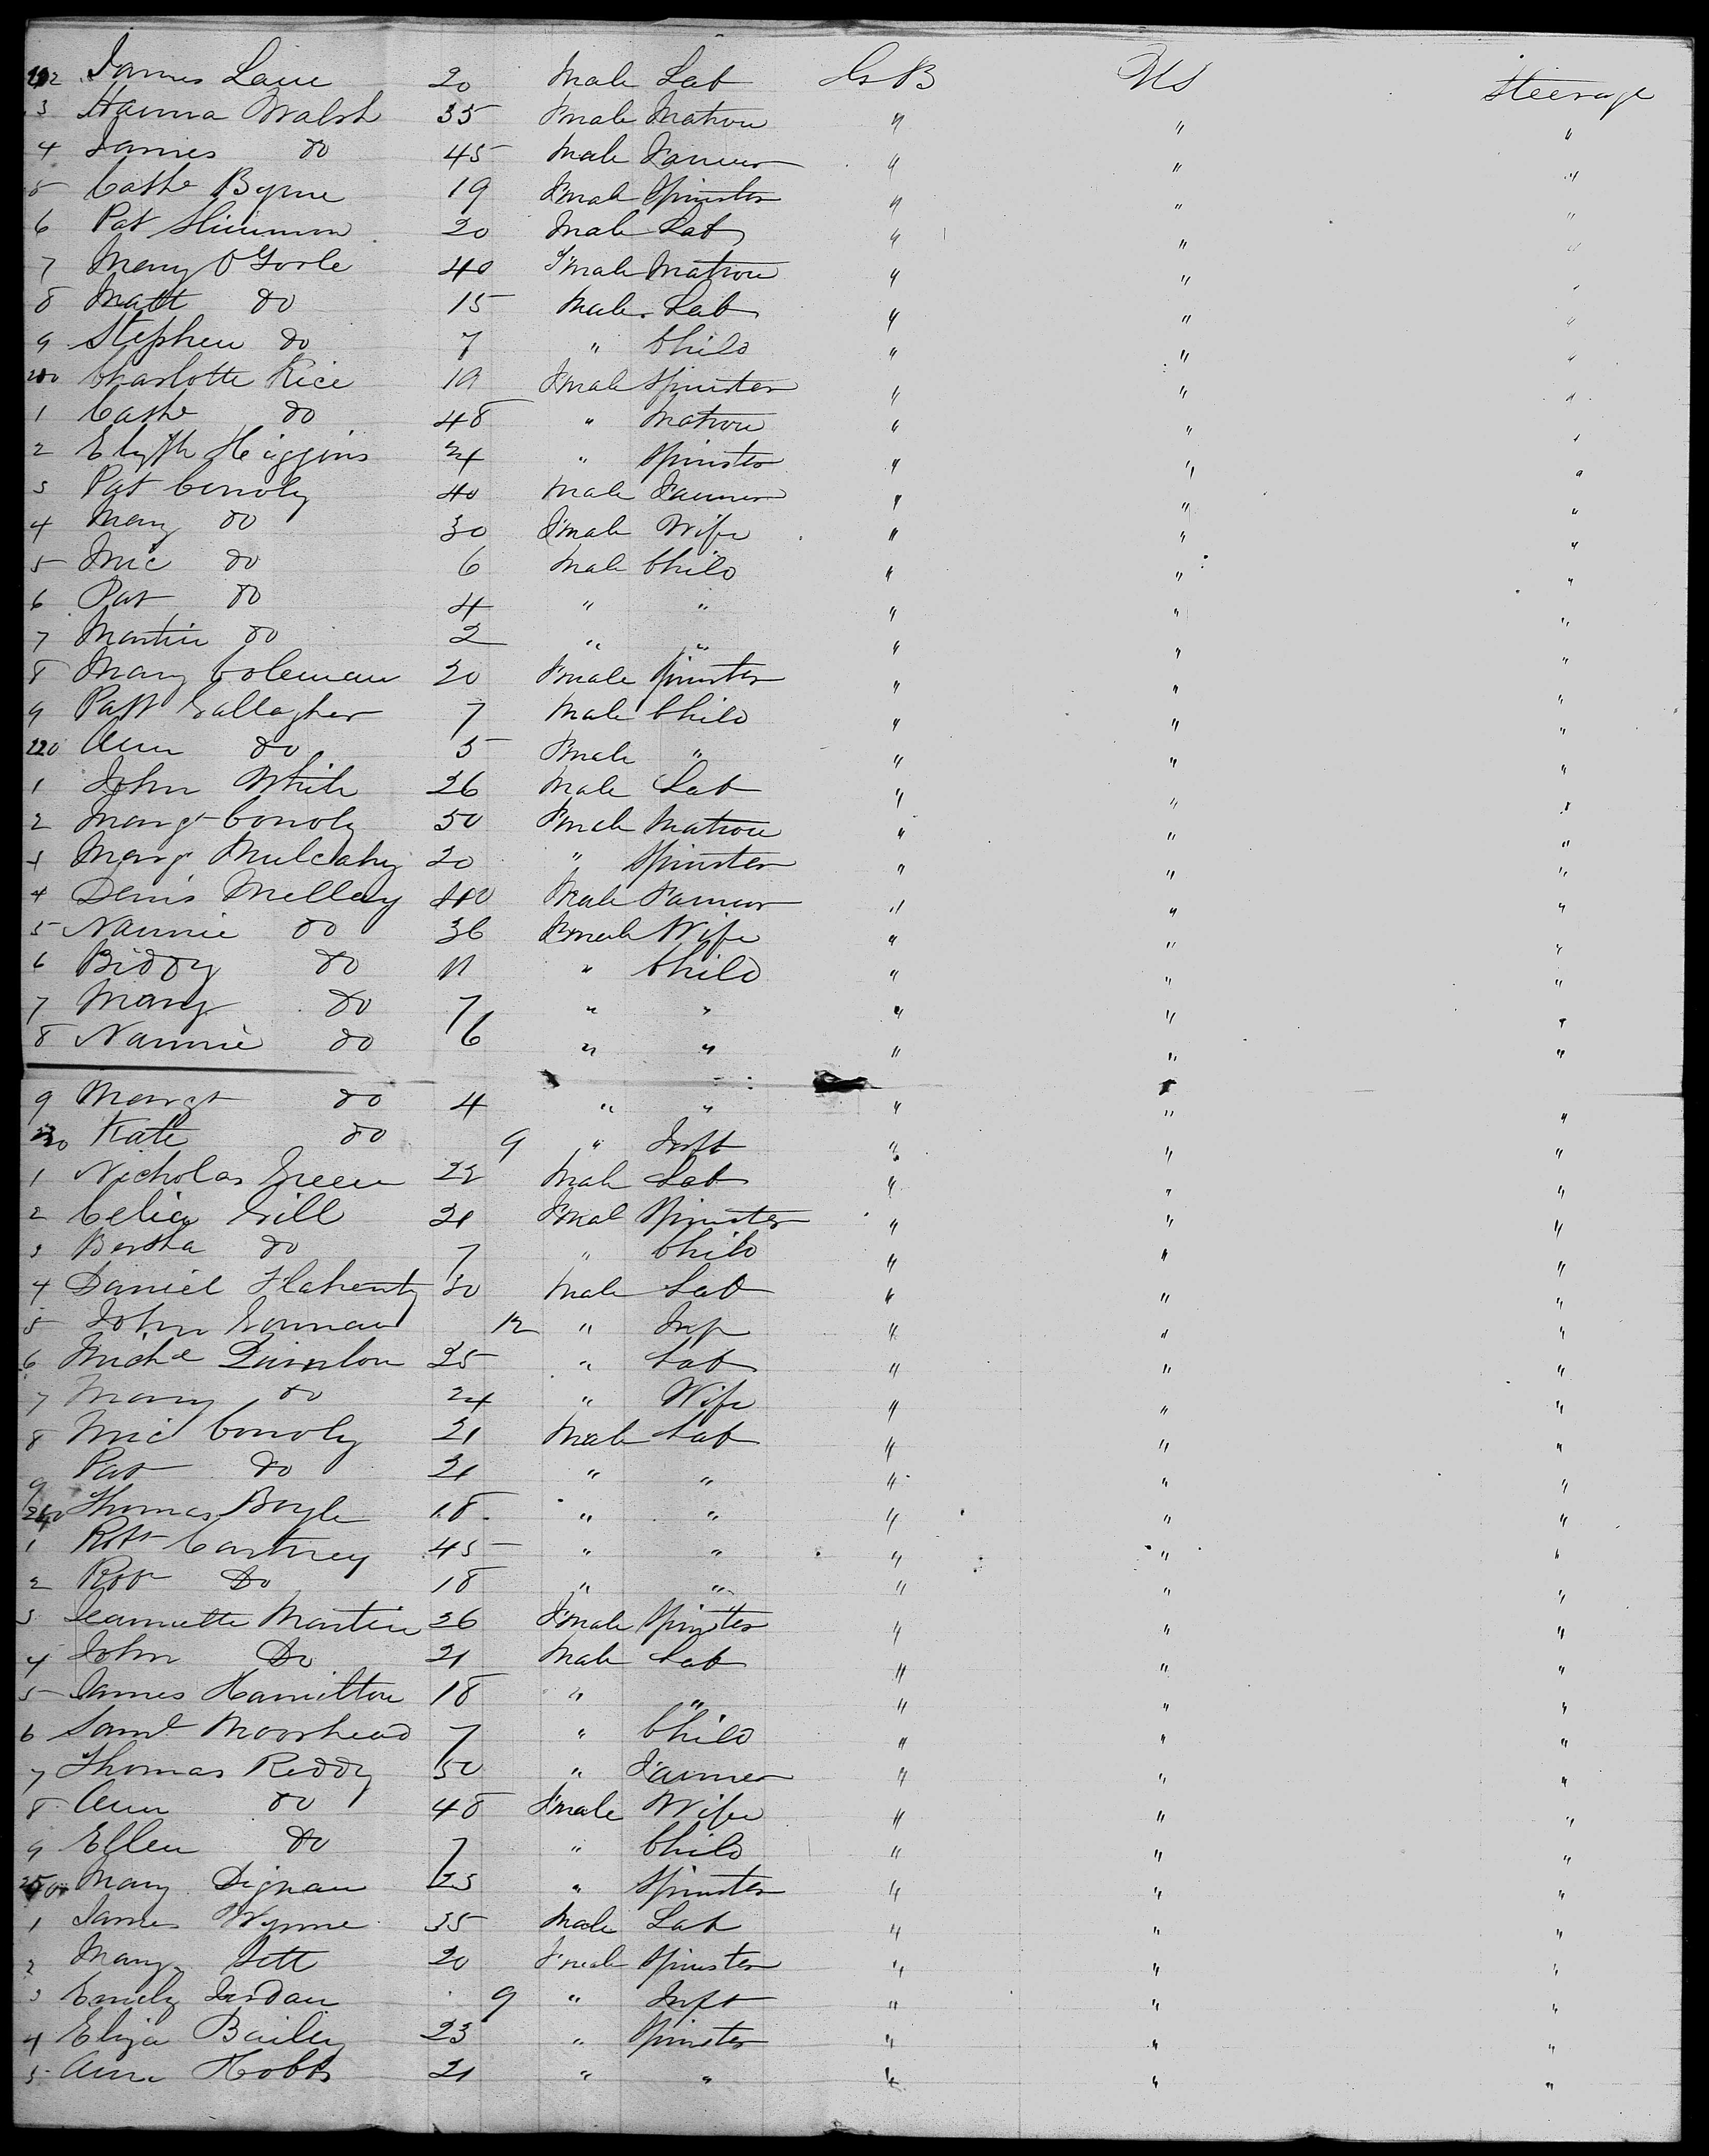 James Lane 20 Male Lab Gr B US Steerage
3 Hanna Walsh 35 Fmale Matron " " "
4 James do 45 Male Farmer " " "
5 Cathe Byrne 19 Fmale Spinster " " "
6 Pat 20 Male Lab " " "
7 Mary O'Gorle 40 Fmale Matron " " "
8 Matt do 15 Male Lab " " "
9 Stephen do 7 " Child " " "
Charlotte Rice 19 Fmale Spinster " " "
1 Cathe do 48 " Matron " " "
2 Higgins " Spinster " " "
3 Pat Conoly 40 Male Farmer " " "
4 Mary do 30 Fmale Wife " " "
5 Mic do 6 Male Child " " "
6 Pat do 4 " " " " "
7 Martin do 2 " " " " "
8 Mary Coleman 20 Fmale Spinster " " "
9 Patt Gallagher 7 Male Child " " "
220 Ann do 5 Fmale " " " "
1 John White 26 Male Lab " " "
2 Margt Conoly 50 Fmale Matron " " "
3 Marg Mulcahy 20 " Spinster " " "
4 Denis Mellay 40 Male Farmer " " "
5 Nannie do 36 Fmale Wife " " "
6 Biddy do 11 " Child " " "
7 Mary do 7 " " " " "
8 Nannie do 6 " " " " "
9 Margt do 4 " " " " "
230 Kate do 9 " Inft " " "
1 Nicholas Green 22 Male Lab " " "
2 Celia Gill 21 Fmal Spinster " " "
3 Bertha do 7 " Child " " "
4 Daniel Flaherty 30 Male Lab " " "
5 John Gorman 12 " Inf " " "
6 Miche Quinlon 25 " Lab " " "
7 Mary do 24 " Wife " " "
8 Mic Conoly 21 Male Lab " " "
9 Pat do 21 " " " " "
240 Thomas Boyle 18 " " " " "
1 Robt Cartney 45 " " " " "
2 Rob Do 18 " " " " "
3 Jeannette Martin 26 Fmale Spinster " " "
4 John Do 21 Male Lab " " "
5 James Hamilton 18 " " " " "
6 Saml Moorhead 7 " Child " " "
7 Thomas Reddy 50 " Farmer " " "
8 Ann do 48 Fmale Wife " " "
9 Ellen do 7 " Child " " "
250 Mary Dignan 23 " Spinster " " "
1 James Wynne 35 Male Lab " " "
2 Mary 20 Fmale Spinster " " "
3 Emily Jordan 9 " Inft " " "
4 Eliza Bailey 23 " Spinster " " "
5 Ann Hobbs 21 " " " " "